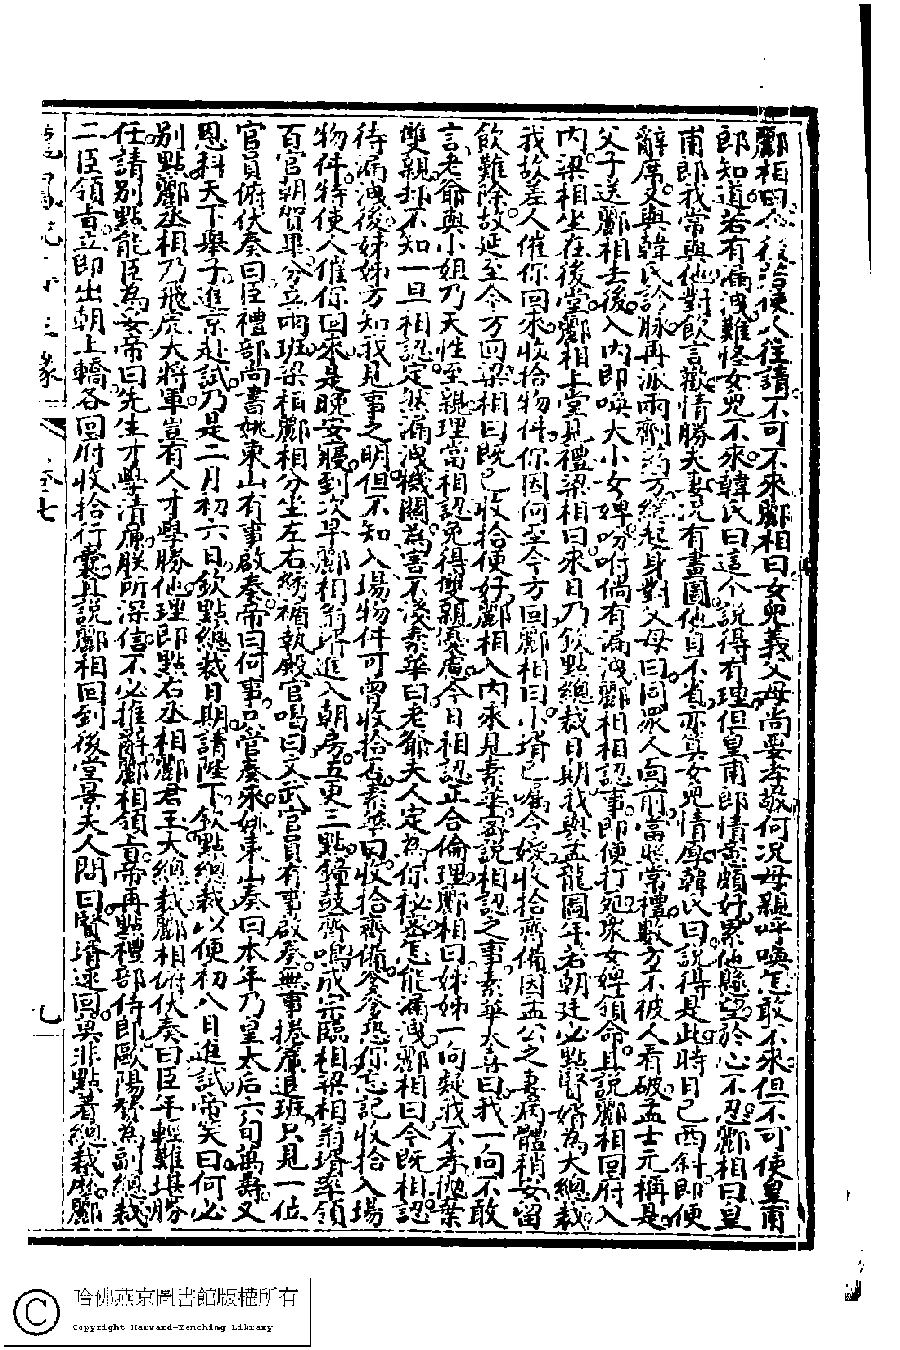 酈相曰以後若使人往請不可不來酈相曰女兒義父母尚要孝敬何況母親呼喚怎敢不來但不可使皇甫
郎知道若有漏洩難怪女兒不來韓氏曰這個說得有理但皇甫郎情意頗好累他懸望於心不忍酈相曰皇
甫郎我常與他對飲言歡情勝夫妻況有畫圖他自不省亦算女兒情厚韓氏曰說得是此時日已西斜即便
辭席又與韓氏診脉再派兩劑葯方總起身對父母曰同眾人面前當照常禮數方不被人看破孟士元稱是
父子送酈相去後入內即喚大小女婢吩咐倘有漏洩酈相相認事即便打死眾女婢領命且說酈相回府入
內梁相坐在後堂酈相上堂見禮梁相曰來日乃欽點總裁日期我與孟龍圖年老朝廷必點賢婿為大總裁
我故差人催你回來收拾物件你因何至今方回酈相曰小婿已囑令媛收拾齊備因孟公之妻病體稍安留
飲難除故延至今方回梁相曰既已收拾便好酈相入內來見素華密說相認之事素華大喜曰我一向不敢
言老爺與小姐乃天性至親理當相認免得雙親憂慮今日相認正合倫理酈相曰姊姊一向疑我不孝拋棄
雙親却不知一旦相認定然漏洩機關為害不淺素華曰老爺夫人定為你秘密怎能漏洩酈相曰今既相認
待漏洩後姊姊方知我見事之明但不知入場物件可曾收拾否素華曰收拾齊備爹爹恐你忘記收拾入場
物件特使人催你回來是晚安寢到次早酈相翁婿進入朝房五更三點鐘鼓齊鳴成宗臨相梁相翁婿率領
百官朝賀畢分立兩班梁相酈相分坐左右綉裀執殿官喝曰文武官員有事啟奏無事捲簾退班只見一位
官員俯伏奏曰臣禮部尚書姚東山有事啟奏帝曰何事只管奏來姚東山奏曰本年乃皇太后六旬萬壽又
恩科天下舉子進京赴試乃是二月初六日欽點總裁日期請陛下欽點總裁以便初八日進試帝笑曰何必
別點酈丞相乃飛虎大將軍豈有人才學勝他理即點右丞相酈君玉大總裁酈相俯伏奏曰臣年輕難堪勝
任請別點能臣為妥帝曰先生才學清廉朕所深信不必推辭酈相領旨帝再點禮部侍郎歐陽發為副總裁
二臣領旨立即出朝上轎各回府收拾行囊且說酈相回到後堂景夫人問曰賢婿速回莫非點著總裁麼酈
卷七
九
哈佛燕京圖書館版權所有
Copyright Harvard-Yenching Library